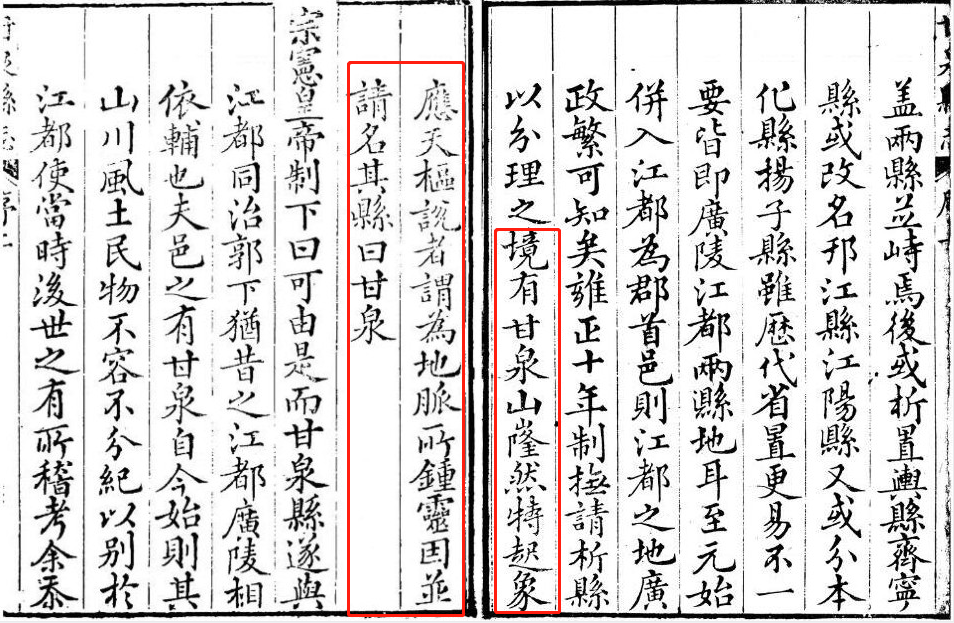 盖兩縣並峙焉後或析置輿縣齊寧
縣或改名邗江縣江陽縣又或分本
化縣揚子縣雖歷代省置更易不一
要皆即廣陵江都兩縣地耳至元始
併入江都為郡首邑則江都之地廣
政繁可知矣雍正十年制撫請析縣
以分理之境有甘泉山隆然特起象
應天樞說者謂為地脈所鍾靈因並
請名其縣曰甘泉
宗憲皇帝制下曰可由是而甘泉縣遂與
江都同治郭下猶昔之江都廣陵相
依輔也夫邑之有甘泉自今始則其
山川風土民物不容不分紀以別於
江都使當時後世之有所稽考余忝